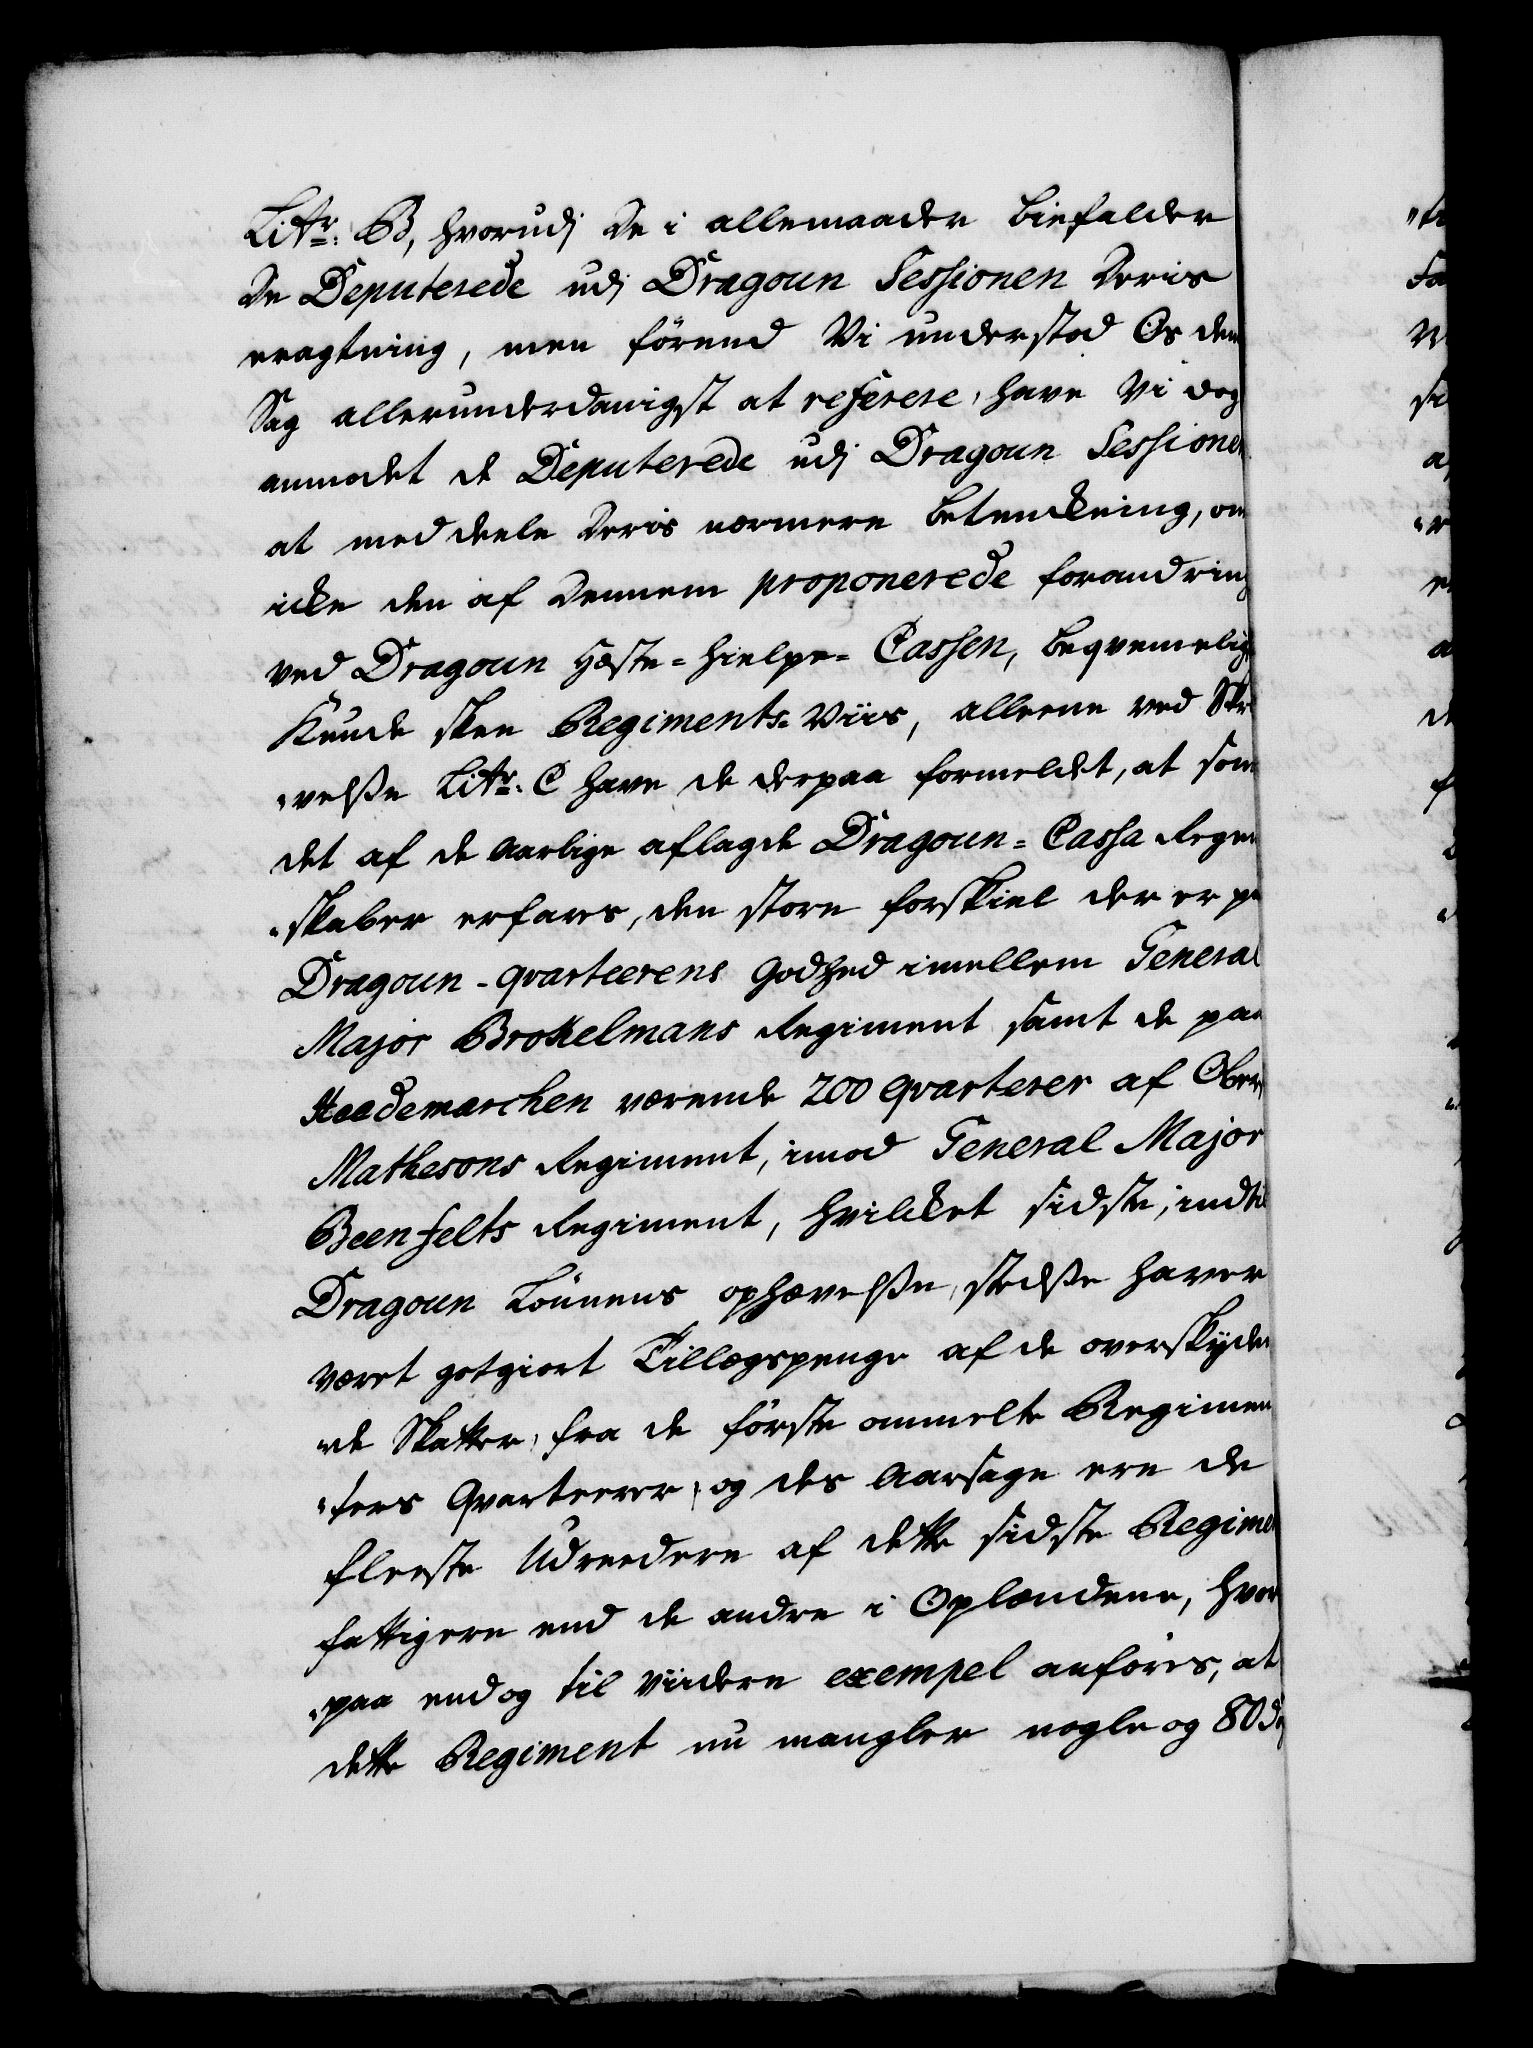 Litr: B, hvorudj de i allemaader biefalder
de Deputerede udj Dragoun Sessionen deris
eragtning, men förend Vi understod Os den
Sag allerunderdanigst at referere, have Vi dog
anmodet de Deputerede udj Dragoun Sessionen
at meddeele deris nærmere betenckning, om
icke den af dennem proponerede forandring
ved Dragoun Heste-hielpe-Cassen, beqvemelig
Kunde skee Regiments-Viis, alleene ved Skri
"velße Litr: C have de derpaa formeldet, at som
det af de Aarlige aflagde Dragoun-Cassa Regn
"skaber erfares, den store forskiel der er paa
Dragoun-qvarteerens Godhed imellem General
Major Brokelmans Regiment samt de paa
Heedemarchen værende 200 qvarterer af Oberst
Mathesons Regiment, imod General Major
Beenfelts Regiment, hvilcket sidste, indtil
Dragoun Lönnens ophævelße, stedße haver
været gotgiort Tillægspenge af de overskyden
"de Skatter, fra de förste ommelte Regimen
"ters Qvarteerer, og des Aarsage ere de
fleeste Udreedere af dette sidste Regiment
fattigere end de andre i Oplændene, hvor
"paa endog til viidere exempel anföres, at
dette Regiment nu mangler nogle og 80